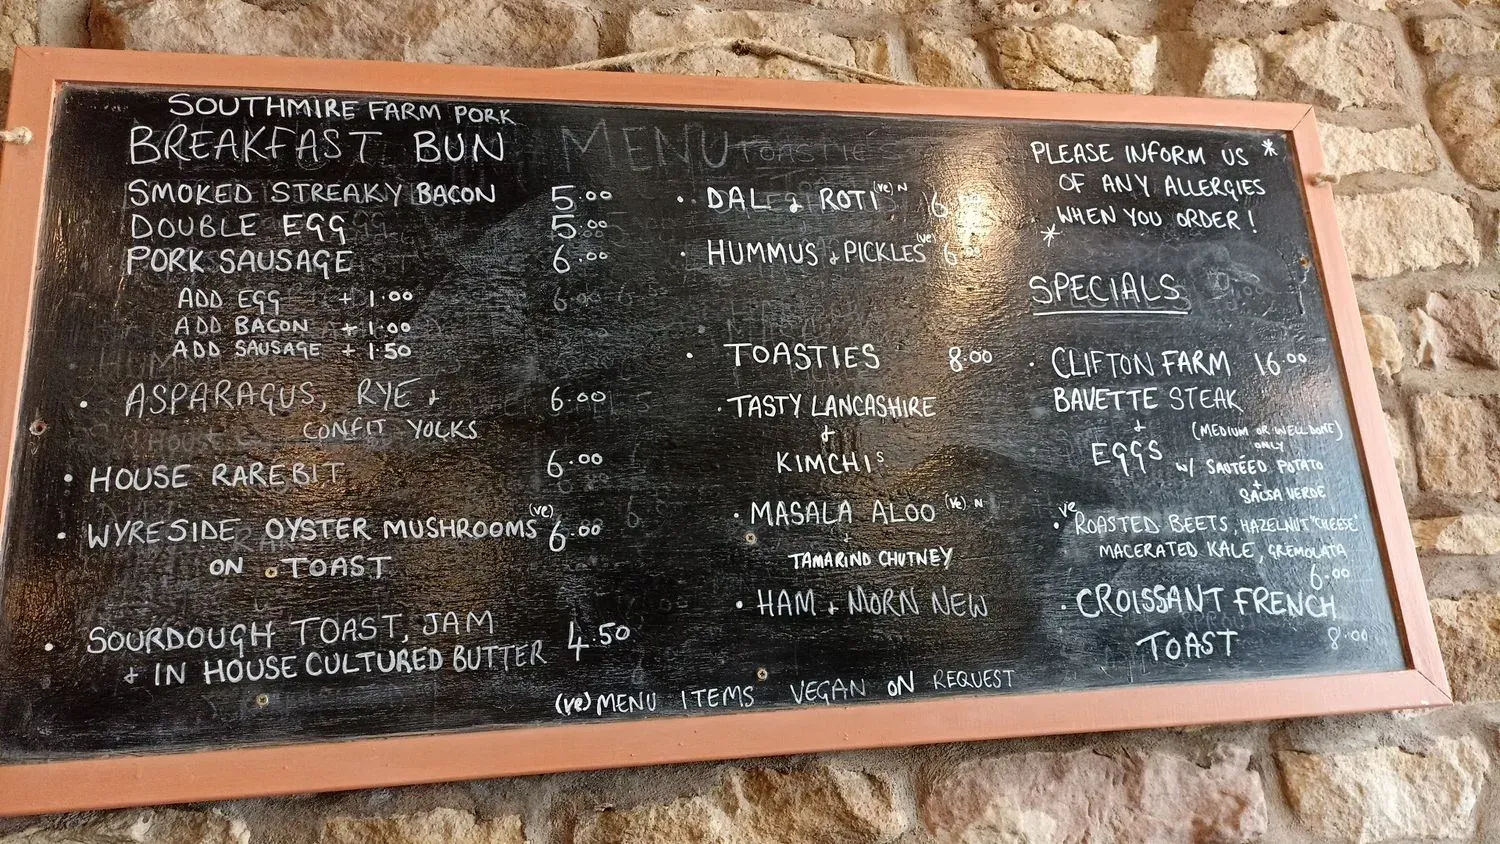 SOUTHMIRE FARM PORK
BREAKFAST BUN
SMOKED STREAKY BACON 5.00
DOUBLE EGG 5.00
PORK SAUSAGE 6.00
ADD EGG + 1.00
ADD BACON + 1.00
ADD SAUSAGE + 1.50
• ASPARAGUS, RYE + 6.00
CONFIT YOLKS
• HOUSE RAREBIT 6.00
• WYRESIDE OYSTER MUSHROOMS (ve) 6.00
ON TOAST
• SOURDOUGH TOAST, JAM 4.50
+ IN HOUSE CULTURED BUTTER
MENU TOASTIES
• DAL + ROTI (ve) N 6
• HUMMUS + PICKLES (ve) 6.00
• TOASTIES 8.00
• TASTY LANCASHIRE
+
KIMCHI S
• MASALA ALOO (ve) N
+
TAMARIND CHUTNEY
• HAM + MORN NEW
(ve) MENU ITEMS VEGAN ON REQUEST
PLEASE INFORM US *
OF ANY ALLERGIES
* WHEN YOU ORDER!
SPECIALS
• CLIFTON FARM 16.00
BAVETTE STEAK
+
EGGS (MEDIUM OR WELL DONE)
ONLY
W/ SAUTÉED POTATO
+
SALSA VERDE
• ve ROASTED BEETS, HAZELNUT "CHEESE"
MACERATED KALE, GREMOLATA
6.00
• CROISSANT FRENCH
TOAST 8.00